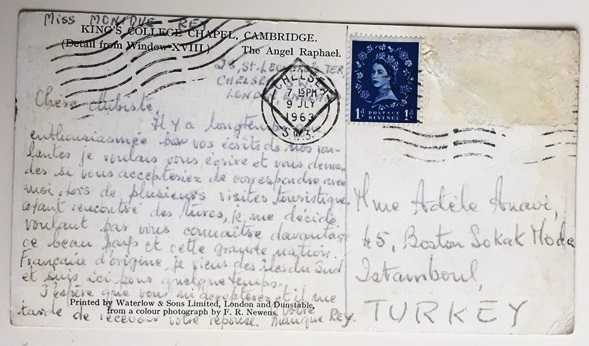 Miss MONIQUE REY
KING'S COLLEGE CHAPEL, CAMBRIDGE.
(Detail from Window XVIII) The Angel Raphael.
28, St-LEONARD'S TER
CHELSEA
LONDON
Chère
Il y a longtemps
enthousiasmée par vos
je voulais vous écrire et vous deman-
der si vous accepteriez de correspondre avec
moi, lors de plusieurs visites touristiques
ayant rencontré des turcs, je me décide
voulant par vous connaître davantage
ce beau pays et cette grande nation.
Française d'origine, je viens des îles du Sud
et suis ici pour quelque temps.
J'espère que vous accepterez et il me
tarde de recevoir votre réponse. Monique REY
Printed by Waterlow & Sons Limited, London and Dunstable,
from a colour photograph by F. R. Newens.
CHELSEA
7 15PM
9 JLY
1963
S.W.3.
1d POSTAGE REVENUE 1d
Mme Adèle Anavi,
45, Boston Sokak Moda
Istamboul,
TURKEY